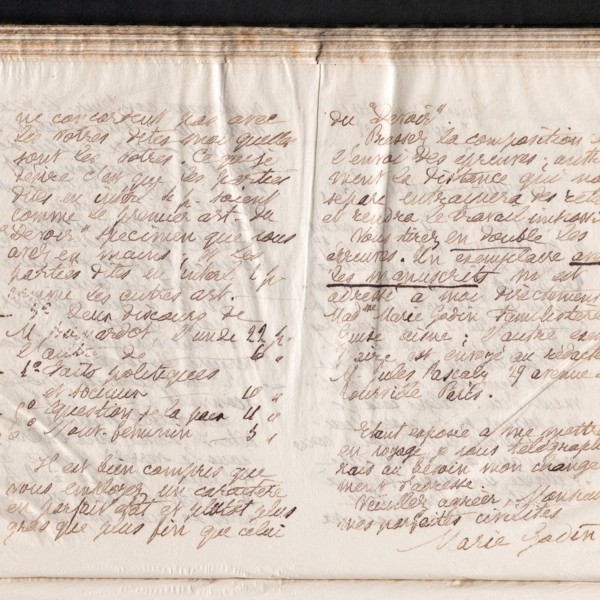 ne concordent pas avec
les votres dites moi quelles
sont les votres. Ce que je
c'est que les parties
dites en interl. 2 p. soient
comme le premier art. du
"Devoir" specimen que vous
avez en mains, et les
parties dites en interl. 1 p.
comme les autres art.
3° Deux discours de
M. L'un de 22 p.
l'autre de 6 "
4° Faits politiques
et sociaux 10 "
5° Question de la paix 4 "
6° 3 "
Il est bien compris que
vous employez un caractère
en parfait état et plutot plus
gros que plus fin que celui
du "Devoir".
Pressez la composition
l'envoi des epreuves; autre
ment la distance qui no
sépare entrainera des reta
et rendra le travail impossi
Vous tirez en double les
épreuves. Un exemplaire a
les manuscrits m'est
adressé à moi directement
Mad me Marie Godin Familistère
Guise Aisne; l'autre exem
plaire est envoyé au rédacte
M. Jules Pascaly 29 avenue
Tourville Paris.
Etant exposée à me mettre
en voyage je vous télégraph
rais au besoin mon change
ment d'adresse.
Veuillez agréer, Monsieur
mes parfaites civilités
Marie Godin